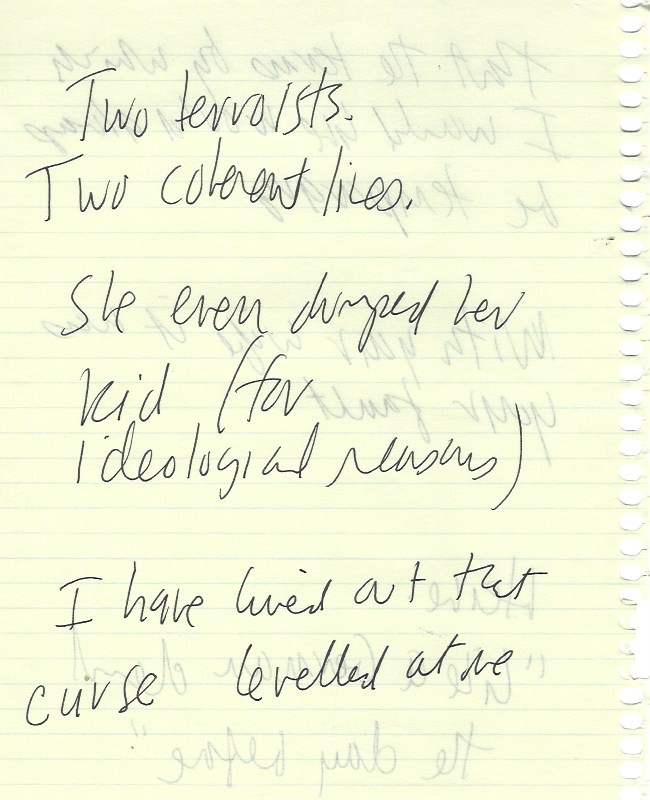 Two terroists.
Two coherent lives.
She even dumped her
kid (for
ideological reasons)
I have lived out that
curse levelled at me